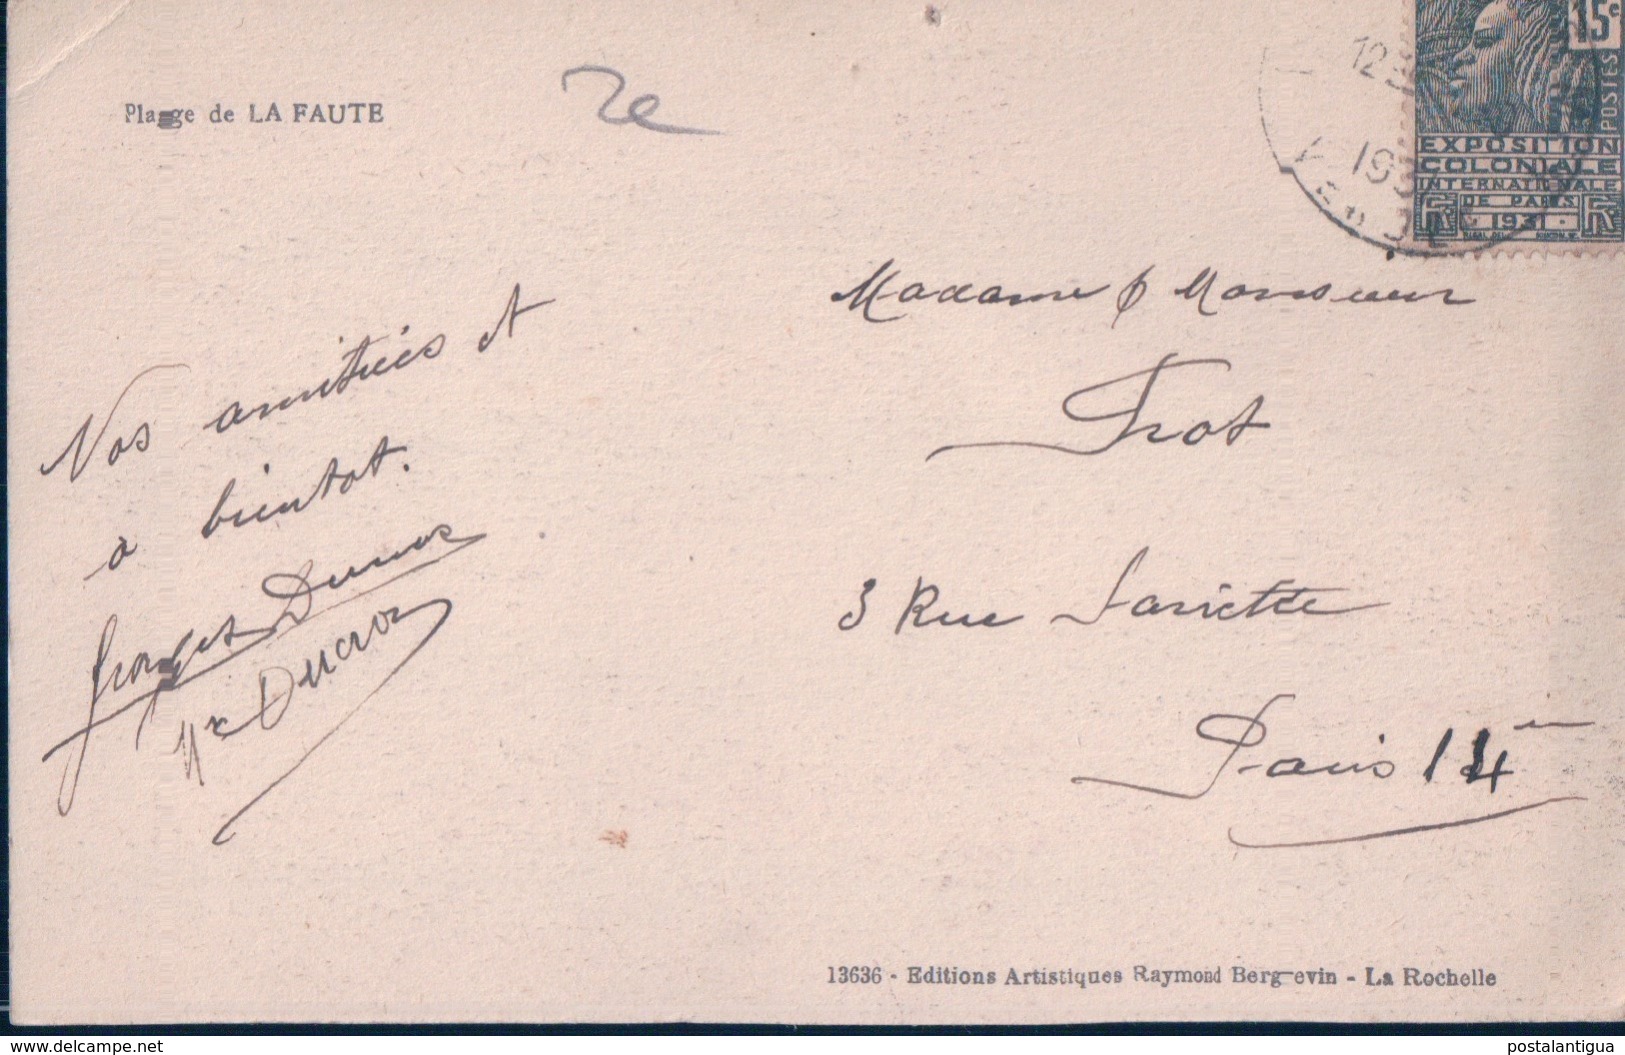 Plage de LA FAUTE
2e
15c
POSTES
EXPOSITION
COLONIALE
INTERNATIONALE
DE PARIS
1931
12
193
VENDÉE
Madame & Monsieur
Frot
3 Rue Lariette
Paris 14em
Nos amitiés et
à bientot.
Ducros
13636 - Editions Artistiques Raymond Bergevin - La Rochelle
www.delcampe.net
postalantigua